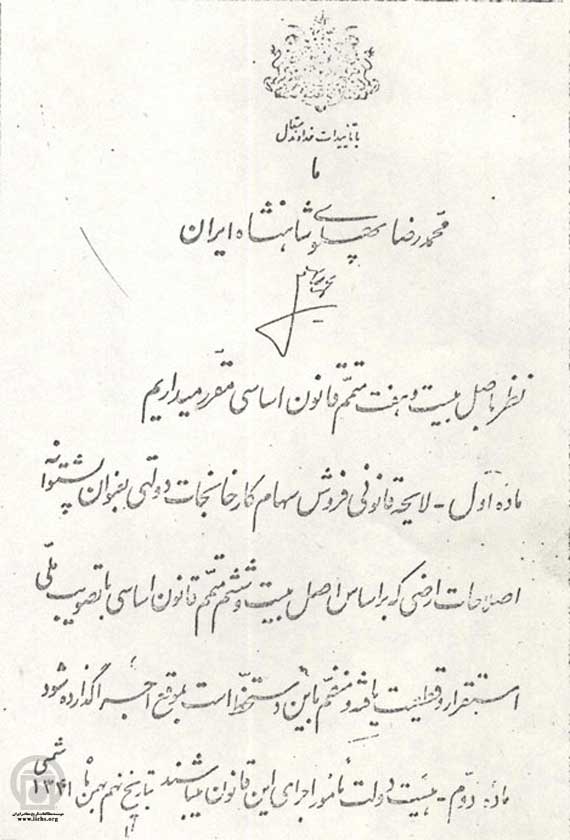 با تأییدات خداوند متعال
ما
محمد رضا پهلوی شاهنشاه ایران
نظر باصل بیست و هفت متمم قانون اساسی مقرر میداریم
ماده اول - لایحه قانونی فروش سهام کارخانجات دولتی بعنوان پشتوانه
اصلاحات ارضی که براساس اصل بیست و ششم متمم قانون اساسی با تصویب ملی
استقرار و قطعیت یافته و منضم باین دستخط است بموقع اجرا گذارده شود
ماده دوم - هیئت دولت مأمور اجرای این قانون میباشند بتاریخ نهم بهمن ماه ۱۳۴۱ شمسی
موسسه مطالعات تاریخ معاصر ایران
www.iichs.org